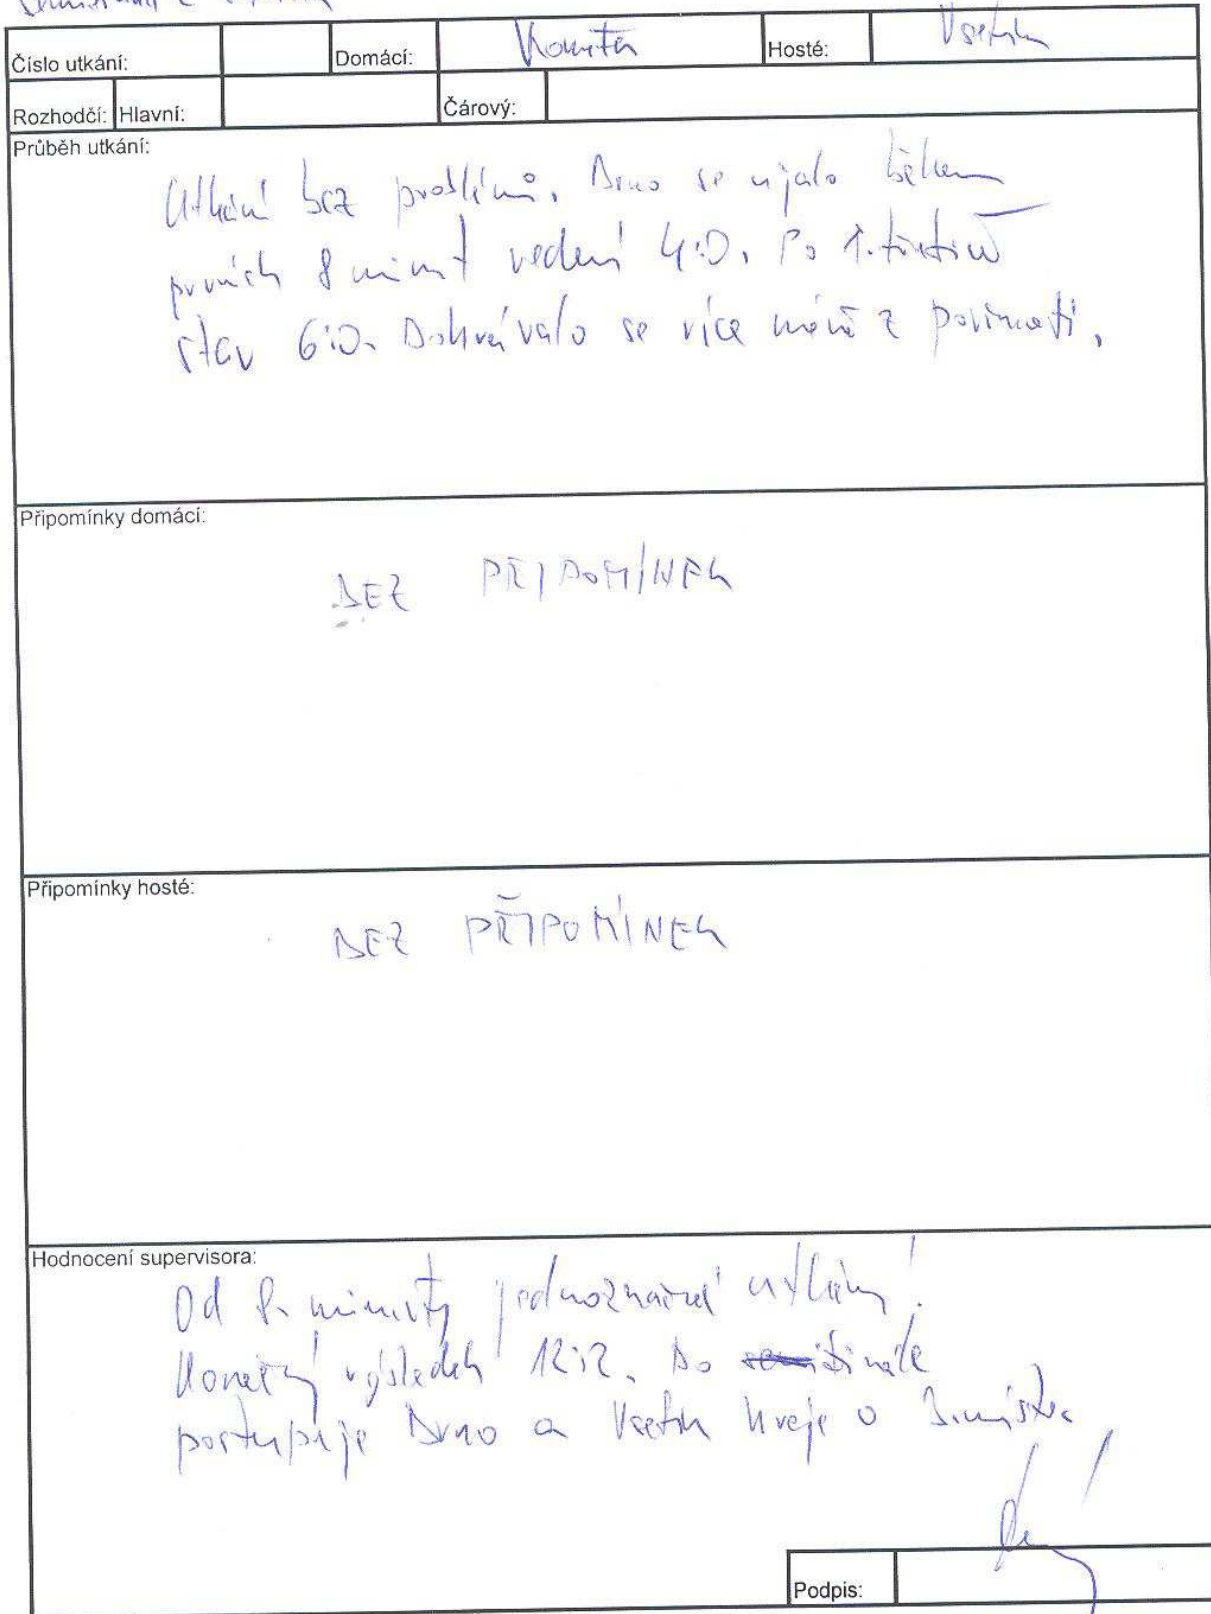 Číslo utkání: Domácí: Kometa Hosté: Vsetín
Rozhodčí: Hlavní: Čárový:
Průběh utkání:
Utkání bez problémů. Brno se ujalo během
prvních 8 minut vedení 4:0. Po 1. třetině
stav 6:0. Dohrávalo se více méně z povinnosti.
Připomínky domácí:
BEZ PŘIPOMÍNEK
Připomínky hosté:
BEZ PŘIPOMÍNEK
Hodnocení supervisora:
Od 8. minuty jednoznačné utkání.
Konečný výsledek 12:2. Do finále
postupuje Brno a Vsetín hraje o 3. místo
Podpis: